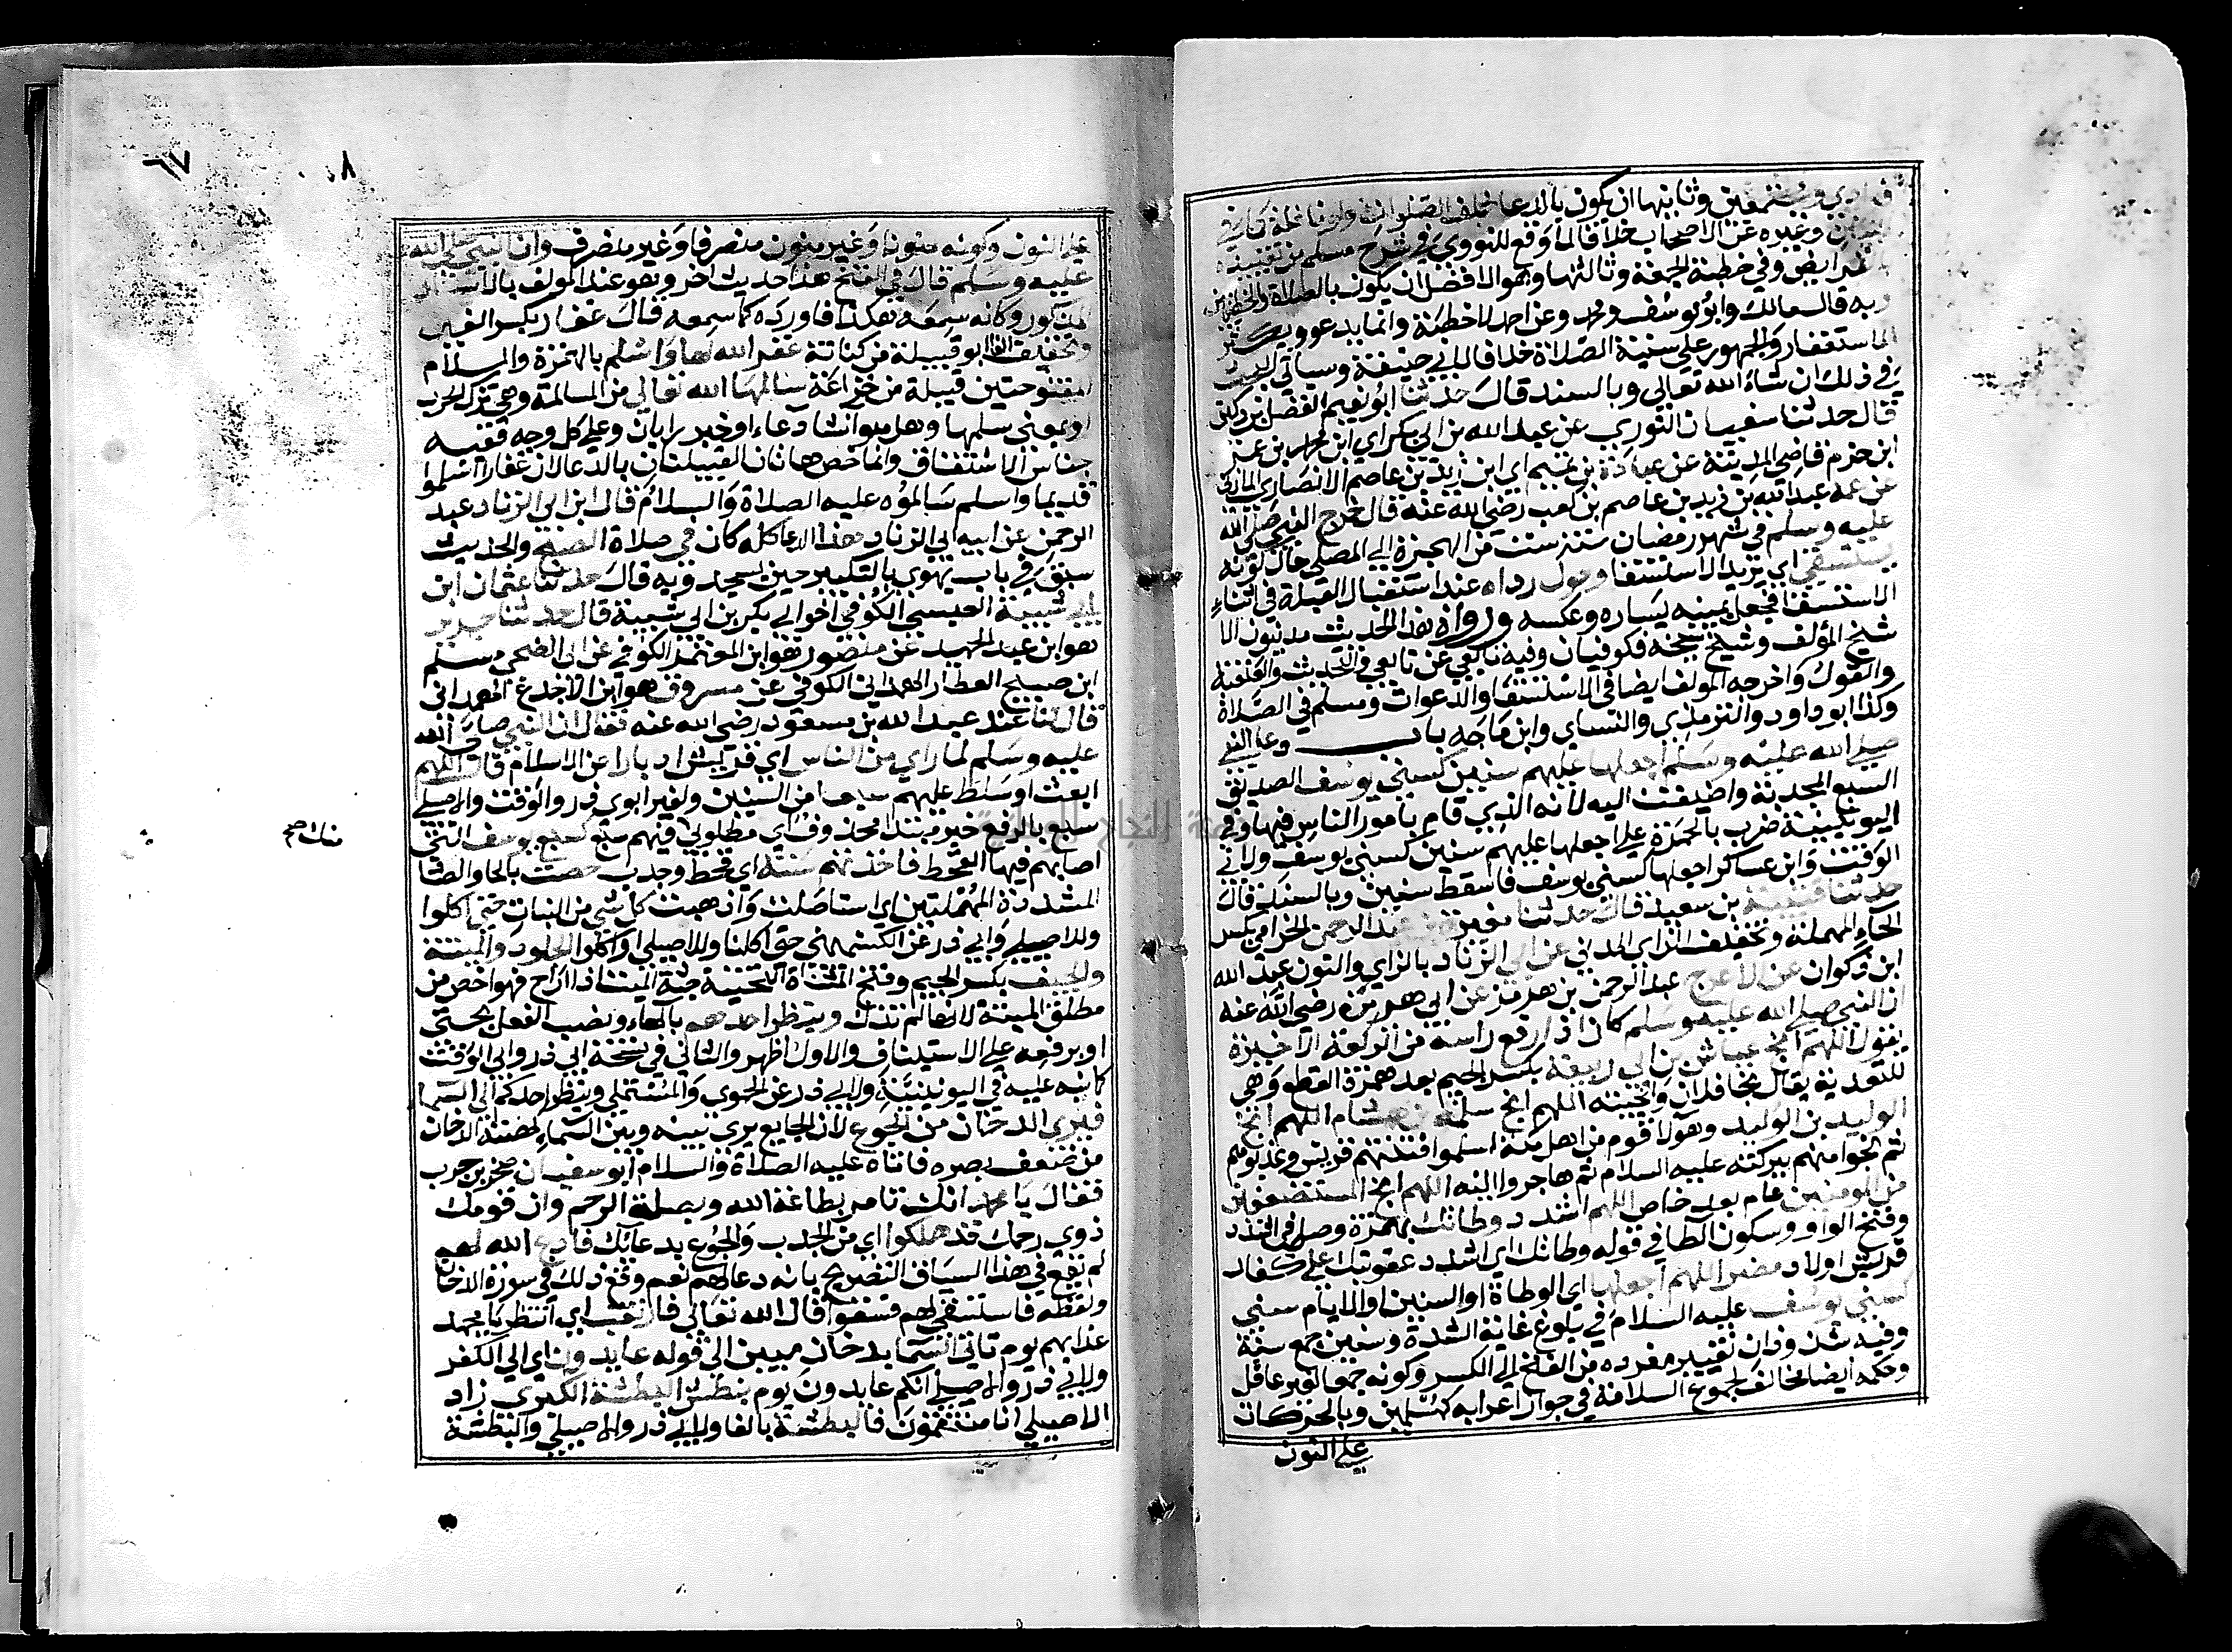 فرادى ومجتمعين وثانيها ان يكون بالدعا خلف الصلوات ولو نافلة كما في
البيان وغيره عن الاصحاب خلافا لما وقع للنووي في شرح مسلم من تقييده
بالفرايض وفي خطبة الجمعة وثالثها وهو الافضل ان يكون بالصلاة والخطبتين
وبه قال مالك وابو يوسف ومحمد وعن احمد لا خطبة وانما يدعو ويكثر
الاستغفار والجمهور على سنية الصلاة خلافا لابي حنيفة وسياتي البحث
في ذلك ان شاء الله تعالى وبالسند قال حدثنا ابو نعيم الفضل بن دكين
قال حدثنا سفيان الثوري عن عبد الله بن ابي بكر اي ابن محمد بن عمرو
ابن حزم قاضي المدينة عن عباد بن تميم اي ابن زيد بن عاصم الانصاري المازني
عن عمه عبد الله بن زيد بن عاصم بن كعب رضي الله عنه قال خرج النبي صلى الله
عليه وسلم في شهر رمضان سنة ست من الهجرة الى المصلى حال كونه
يستسقي اي يريد الاستسقا وحول رداه عند استقبال القبلة في اثناء
الاستسقا فجعل يمينه يساره وعكسه ورواة هذا الحديث مدنيون الا
شيخ المؤلف وشيخ شيخه فكوفيان وفيه تابعي عن تابعي والتحديث والعنعنة
والقول واخرجه المولف ايضا في الاستسقا والدعوات ومسلم في الصلاة
وكذا ابو داود والترمذي والنساي وابن ماجه باب دعا النبي
صلى الله عليه وسلم اجعلها عليهم سنين كسني يوسف الصديق
السبع المجدبة واضيفت اليه لانه الذي قام بامور الناس فيها وفي
اليونينية ضرب بالحمرة على اجعلها عليهم سنين كسني يوسف ولابي
الوقت وابن عساكر اجعلها كسني يوسف فاسقط سنين وبالسند قال
حدثنا قتيبة بن سعيد قال حدثنا مغيرة بن عبد الرحمن الحزامي بكسر
الحاء المهملة وتخفيف الزاي المدني عن ابي الزناد بالزاي والنون عبد الله
ابن ذكوان عن الاعرج عبد الرحمن بن هرمز عن ابي هريرة رضي الله عنه
ان النبي صلى الله عليه وسلم كان اذا رفع راسه من الركعة الاخيرة
يقول اللهم انج عياش بن ابي ربيعة بكسر الجيم بعد همزة القطع وهي
للتعدية يقال نجا فلان وانجيته اللهم انج سلمة بن هشام اللهم انج
الوليد بن الوليد وهولا قوم من اهل مكة اسلموا فتنتهم قريش وعذبوهم
ثم نجوا منهم ببركته عليه السلام ثم هاجروا اليه اللهم انج المستضعفين
من المومنين عام بعد خاص اللهم اشدد وطاتك بهمزة وصل في اشدد
وفتح الواو وسكون الطا في قوله وطاتك اي اشدد عقوبتك على كفار
قريش اولاد مضر اللهم اجعلها اي الوطاة او السنين او الايام سنين
كسني يوسف عليه السلام في بلوغ غاية الشدة وسنين جمع سنة
وفيه شذوذان تغيير مفرده من الفتح الى الكسر وكونه جمعا لغير عاقل
وحكمه ايضا مخالف لجموع السلامة في جواز اعرابه كمسلمين وبالحركات
على النون
٦٧
٨
على النون وكونه منونا وغير منون منصرفا وغير منصرف وان النبي صلى الله
عليه وسلم قال في الفتح هذا حديث اخر وهو عند المولف بالاسناد
المذكور وكانه سمعه هكذا فاورده كما سمعه قال غفار بكسر الغين
وتخفيف الفا ابو قبيلة من كنانة غفر الله لها واسلم بالهمزة والسلام
المفتوحتين قبيلة من خزاعة سالمها الله تعالى من المسالمة وهي ترك الحرب
او بمعنى سلمها وهل هو انشا دعاء او خبر رايان وعلى كل وجه ففيه
جناس الاشتقاق وانما خص هاتان القبيلتان بالدعا لان غفارا اسلموا
قديما واسلم سالموه عليه الصلاة والسلام قال ابن ابي الزناد عبد
الرحمن عن ابيه ابي الزناد هذا الدعا كله كان في صلاة الصبح والحديث
سبق في باب يهوي بالتكبير حين يسجد وبه قال حدثنا عثمان ابن
ابي شيبة العبسي الكوفي اخو ابي بكر بن ابي شيبة قال حدثنا جرير
هو ابن عبد الحميد عن منصور هو ابن المعتمر الكوفي عن ابي الضحى مسلم
ابن صبيح العطار الهمداني الكوفي عن مسروق هو ابن الاجدع الهمداني
قال كنا عند عبد الله بن مسعود رضي الله عنه فقال ان النبي صلى الله
عليه وسلم لما راى من الناس اي قريش ادبارا عن الاسلام قال اللهم
ابعث او سلط عليهم سبعا من السنين ولغير ابوي ذر والوقت والاصيلي
سبع بالرفع خبر مبتدا محذوف اي مطلوبي فيهم سبع كسبع يوسف التي
منك صح
اصابهم فيها القحط فاخذتهم سنة اي قحط وجدب حصت بالحا والصاد
المشددة المهملتين اي استاصلت واذهبت كل شي من النبات حتى اكلوا
وللاصيلي وابي ذر عن الكشميهني حتى اكلنا وللاصيلي واكلوا الجلود والميتة
والجيف بكسر الجيم وفتح المثناة التحتية جثة الميت اذا اراح فهو اخص من
مطلق الميتة لانها ما لم تذك وينظر احدهم بالهاء ونصب الفعل بحتى
او برفعه على الاستيناف والاول اظهر والثاني في نسخة ابي ذر وابي الوقت
كما نبه عليه في اليونينية ولابي ذر عن الحموي والمستملي وينظر احدكم الى السما
فيرى الدخان من الجوع لان الجايع يرى بينه وبين السماء كهيئة الدخان
من ضعف بصره فاتاه عليه الصلاة والسلام ابو سفيان صخر بن حرب
فقال يا محمد انك تامر بطاعة الله وبصلة الرحم وان قومك
ذوي رحمك قد هلكوا اي من الجدب والجوع بدعايك فادع الله لهم
لم يقع في هذا السياق التصريح بانه دعا لهم نعم وقع ذلك في سورة الدخان
ولفظه فاستسقى لهم فسقوا قال الله تعالى فارتقب اي انتظر يا محمد
عذابهم يوم تاتي السما بدخان مبين الى قوله عايدون اي الى الكفر
ولابي ذر والاصيلي انكم عايدون يوم نبطش البطشة الكبرى زاد
الاصيلي انا منتقمون فالبطشة بالفا ولابي ذر والاصيلي والبطشة